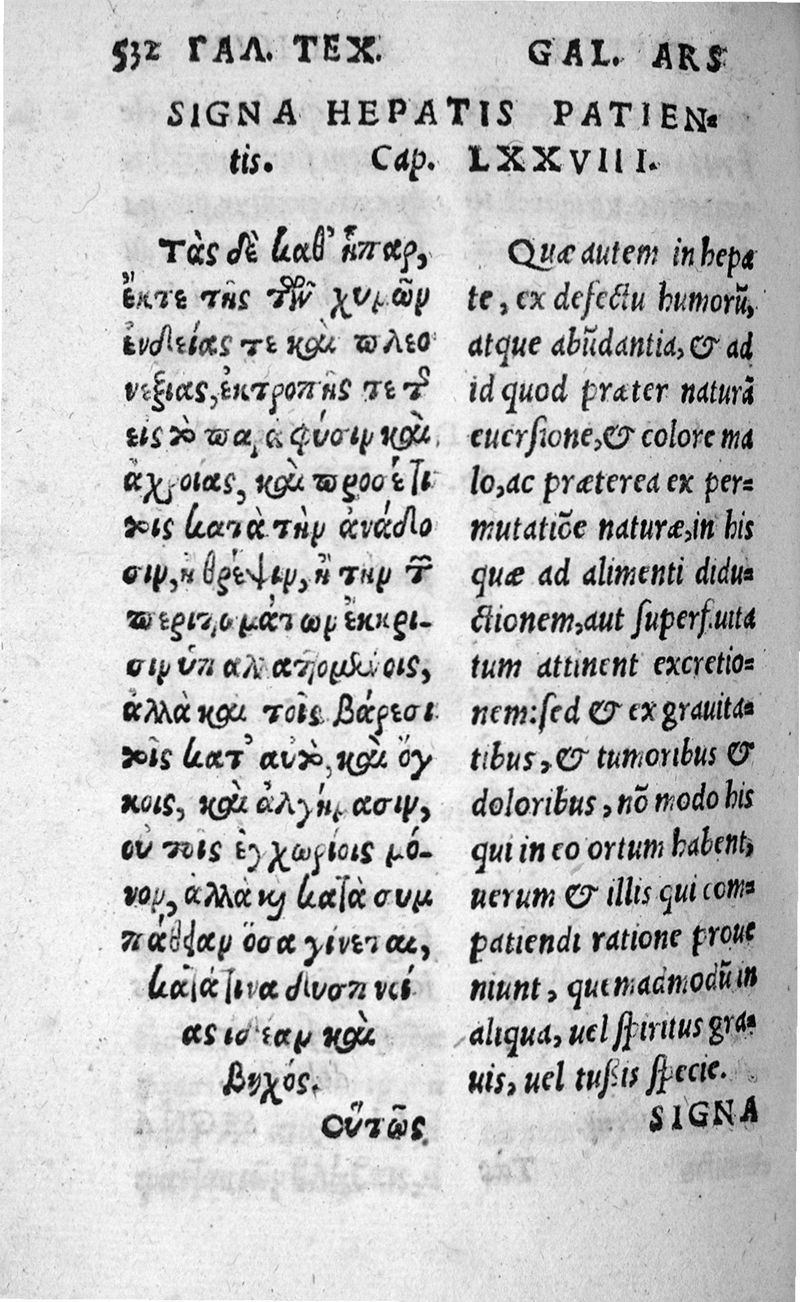 532 ΓΑΛ. ΤΕΧ. GAL. ARS
SIGNA HEPATIS PATIEN-
tis. Cap. LXXVIII.
Τὰς δὲ καθ' ἧπαρ,
ἔκ τε τῆς τῶν χυμῶν
ἐνδείας τε καὶ πλεο
νεξίας, ἐκτροπῆς τε τῆς
εἰς τὸ παρὰ φύσιν καὶ
ἀχροίας, καὶ προσέτι
τοῖς κατὰ τὴν ἀνάδο
σιν, ἢ θρέψιν, ἢ τὴν τῶν
περιττωμάτων ἔκκρι-
σιν ὑπαλλαττομένοις,
ἀλλὰ καὶ τοῖς βάρεσι
τοῖς κατ' αὐτὸ, καὶ ὄγ
κοις, καὶ ἀλγήμασιν,
οὐ τοῖς ἐγχωρίοις μό-
νον, ἀλλὰ κὶ κατὰ συμ
πάθειαν ὅσα γίνεται,
κατά τινα δυσπνοί
ας ἰδέαν καὶ
βηχός.
Οὕτως
Quæ autem in hepa
te, ex defectu humorũ,
atque abũdantia, & ad
id quod præter naturã
euersione, & colore ma
lo, ac præterea ex per-
mutatiõe naturæ, in his
quæ ad alimenti didu-
ctionem, aut superfluita
tum attinent excretio-
nem: sed & ex grauita-
tibus, & tumoribus &
doloribus, nõ modo his
qui in eo ortum habent,
uerum & illis qui com-
patiendi ratione proue
niunt, quemadmodũ in
aliqua, uel spiritus gra-
uis, uel tussis specie.
SIGNA